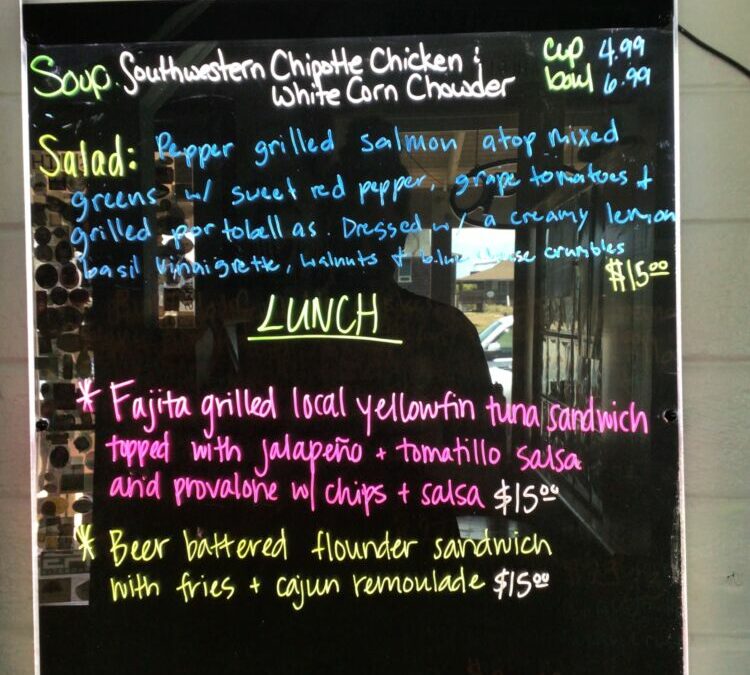 Soup: Southwestern Chipotle Chicken &
White Corn Chowder
cup 4.99
bowl 6.99
Salad: Pepper grilled salmon atop mixed
greens w/ sweet red pepper, grape tomatoes +
grilled portobellas. Dressed w/ a creamy lemon
basil vinaigrette, walnuts + blue cheese crumbles
$15.00
LUNCH
* Fajita grilled local yellowfin tuna sandwich
topped with jalapeño + tomatillo salsa
and provalone w/ chips + salsa $15.00
* Beer battered flounder sandwich
with fries + cajun remoulade $15.00